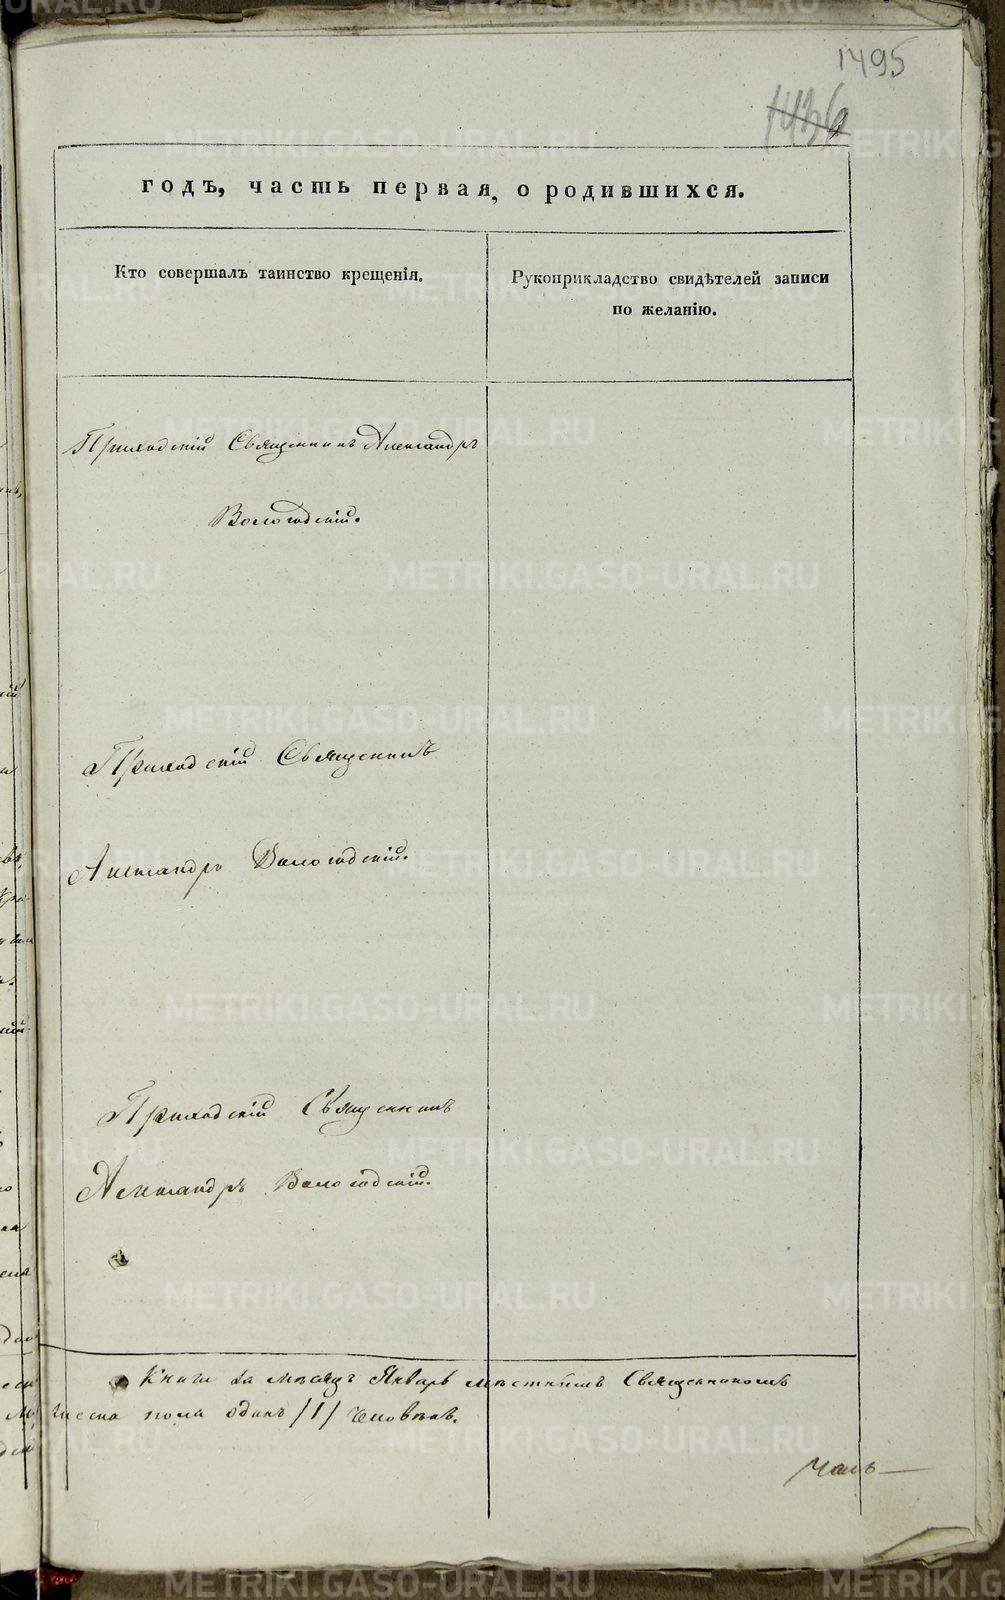 1495
1436
годъ, часть первая, о родившихся.
Кто совершалъ таинство крещенія.
Рукоприкладство свидѣтелей записи
по желанію.
Приходскій Священникъ Александръ
Вологодскій.
Приходскій Священникъ
Александръ Вологодскій.
Приходскій Священникъ
Александръ Вологодскій.
Книги за мѣсяцъ Январь мѣстнымъ Священникомъ
пола одинъ /1/ человѣкъ.
METRIKI.GASO-URAL.RU